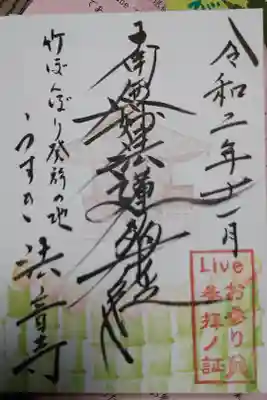 令和二年十一月
南無妙法蓮華経
竹ぼんぼり発祥の地
うすき
法音寺
Live
お参り
参拝ノ証